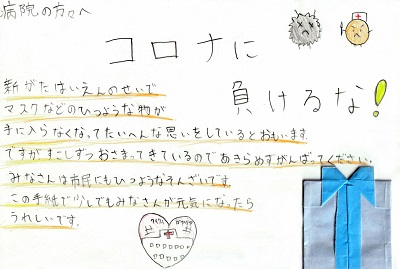 病院の方々へ
コロナに
負けるな!
新がたはいえんのせいで
マスクなどのひつような物が
手に入らなくなってたいへんな思いをしているとおもいます。
ですがすこしずつおさまってきているのであきらめずがんばってください。
みなさんは市民にもひつようなそんざいです。
この手紙で少しでもみなさんが元気になったら
うれしいです。